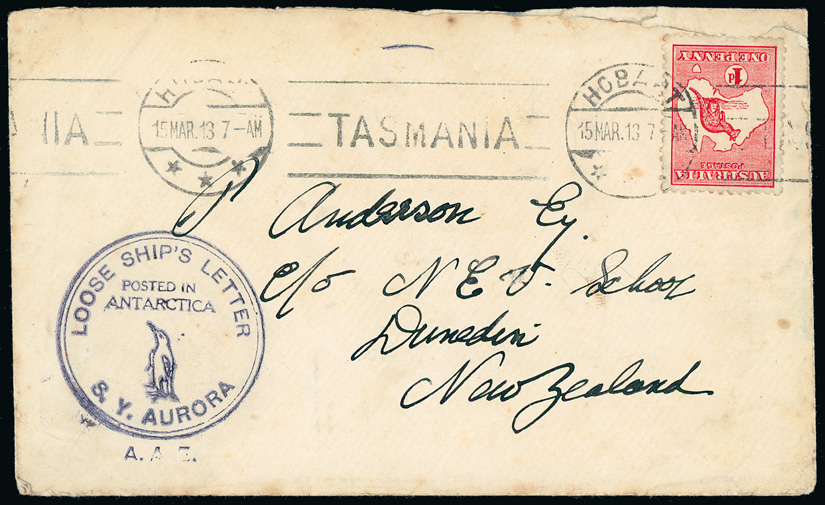 HOBART
15 MAR. 13 7-AM
TASMANIA
HOBART
15 MAR. 13 7-AM
ONE PENNY
1d
POSTAGE
AUSTRALIA
Anderson Ey.
c/o N E V. School
Dunedin
New Zealand
LOOSE SHIP'S LETTER
POSTED IN
ANTARCTICA
S. Y. AURORA
A. A. E.